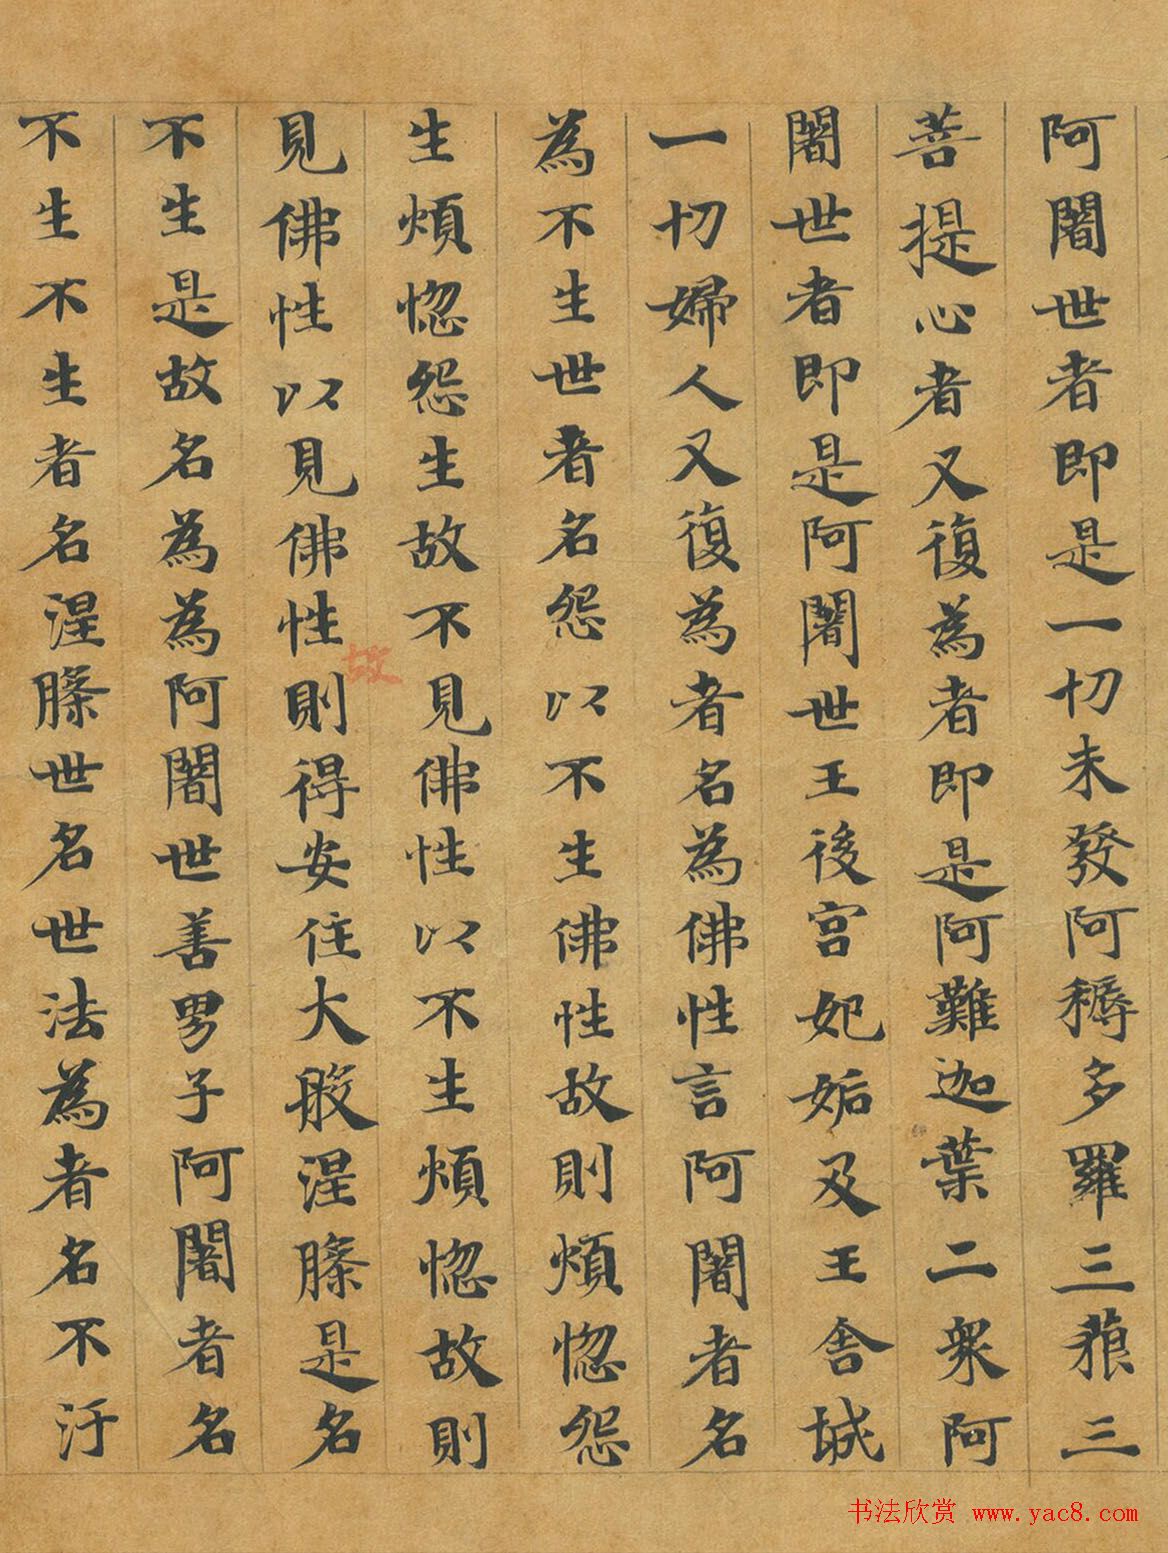 阿闍世者即是一切未發阿耨多羅三藐三
菩提心者又復為者即是阿難迦葉二衆阿
闍世者即是阿闍世王後宮妃妬及王舍城
一切婦人又復為者名為佛性言阿闍者名
為不生世者名怨以不生佛性故則煩惚怨
生煩惚怨生故不見佛性以不生煩惚故則
故
見佛性以見佛性則得安住大般涅槃是名
不生是故名為為阿闍世善男子阿闍者名
不生不生者名涅槃世名世法為者名不汙
书法欣赏 www.yac8.com